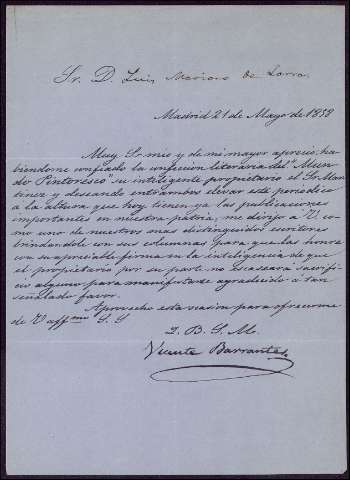 Sr. D. Luis Mariano de Larra.
Madrid 21 de Mayo de 1858
Muy Sr mio y de mi mayor aprecio, ha-
biendome confiado la confeccion literaria del "Mun-
do Pintoresco" su inteligente propietario el Sr. Mar-
tinez y deseando entrambos elevar este periódico
a la altura que hoy tienen ya las publicaciones
importantes en nuestra patria, me dirijo a V. co-
mo uno de nuestros mas distinguidos escritores
brindandole con sus columnas para que las honre
con su apreciable firma en la inteligencia de que
el propietario por su parte no escaseara sacrifi-
cio alguno para manifestarse agradecido a tan
señalado favor.
Aprovecho esta ocasion para ofrecerme
de V aff.mo S. S
Q. B. S. M.
Vicente Barrantes